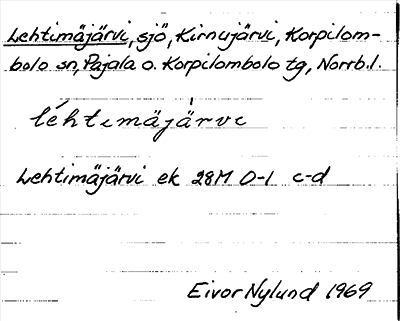 Lehtimäjärvi, sjö, Kirnujärvi, Korpilom-
bolo sn, Pajala o. Korpilombolo tg, Norrb. l.
léhtimäjä̀rvi
Lehtimäjärvi ek 28M 0-1 c-d
Eivor Nylund 1969